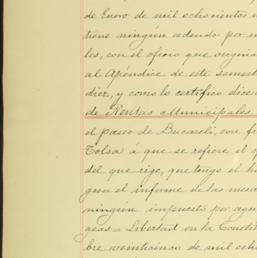 de Enero de mil ochocientos n
tiene ningún adeudo por
les, con el oficio que origina
al Apéndice de este semest
diez, y como lo certifico dice
de Rentas Municipales
el paseo de Bucareli, con fr
Tolsa á que se refiere el o
del que rige, que tengo el ho
gun el informe de las mesa
ningún impuesto por agu
geas = Libertad en la Constit
bre veinticinco de mil ocho